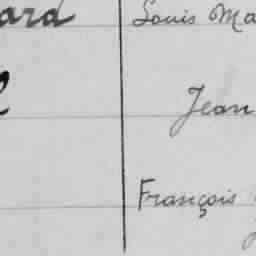 ard Louis Ma
Jean
François